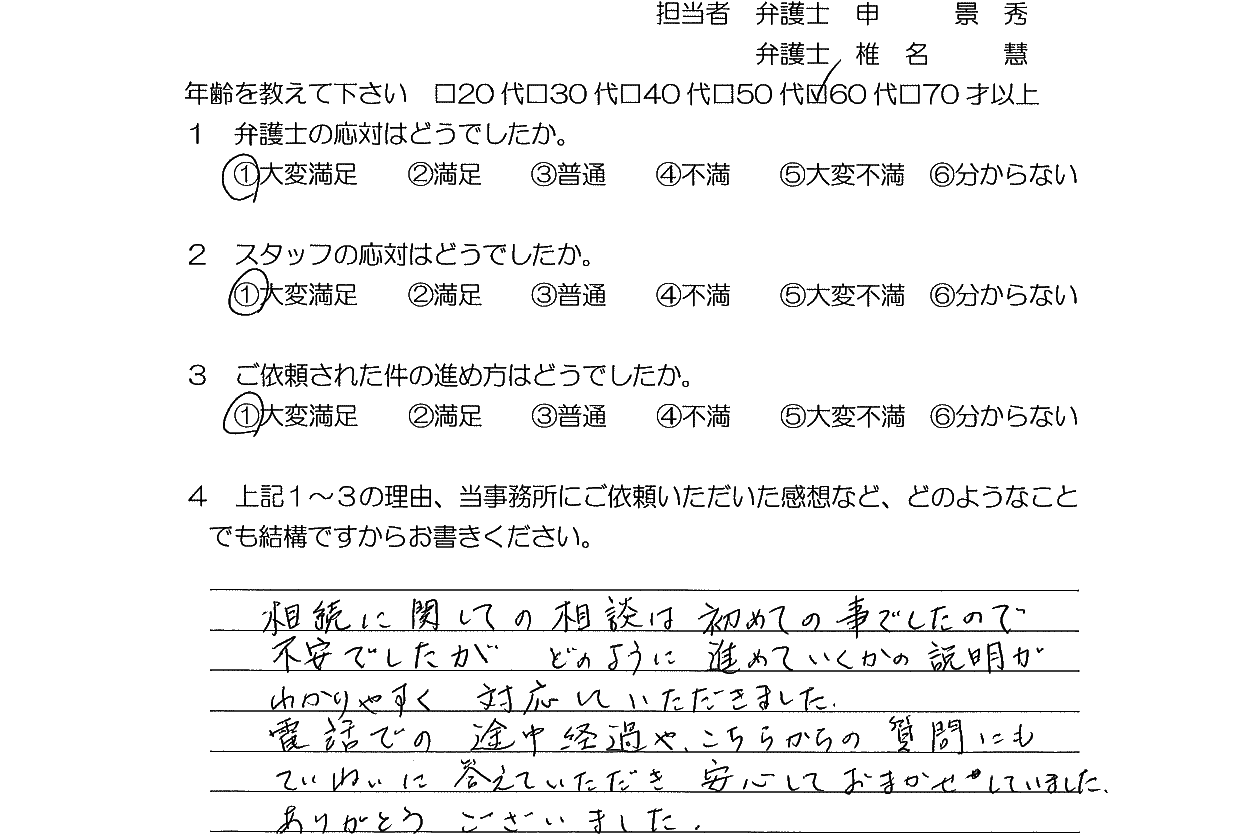 担当者　弁護士　申　　　景　秀
弁護士　椎　名　　　慧
年齢を教えて下さい　□20代□30代□40代□50代☑60代□70才以上
１　弁護士の応対はどうでしたか。
①大変満足　　②満足　　③普通　　④不満　　⑤大変不満　⑥分からない
２　スタッフの応対はどうでしたか。
①大変満足　　②満足　　③普通　　④不満　　⑤大変不満　⑥分からない
３　ご依頼された件の進め方はどうでしたか。
①大変満足　　②満足　　③普通　　④不満　　⑤大変不満　⑥分からない
４　上記１～３の理由、当事務所にご依頼いただいた感想など、どのようなこと
でも結構ですからお書きください。
相続に関しての相談は初めての事でしたので
不安でしたが どのように進めていくかの説明が
わかりやすく 対応していただきました.
電話での 途中経過や、こちらからの 質問にも
ていねいに 答えていただき 安心しておまかせしていました、
ありがとう ございました.